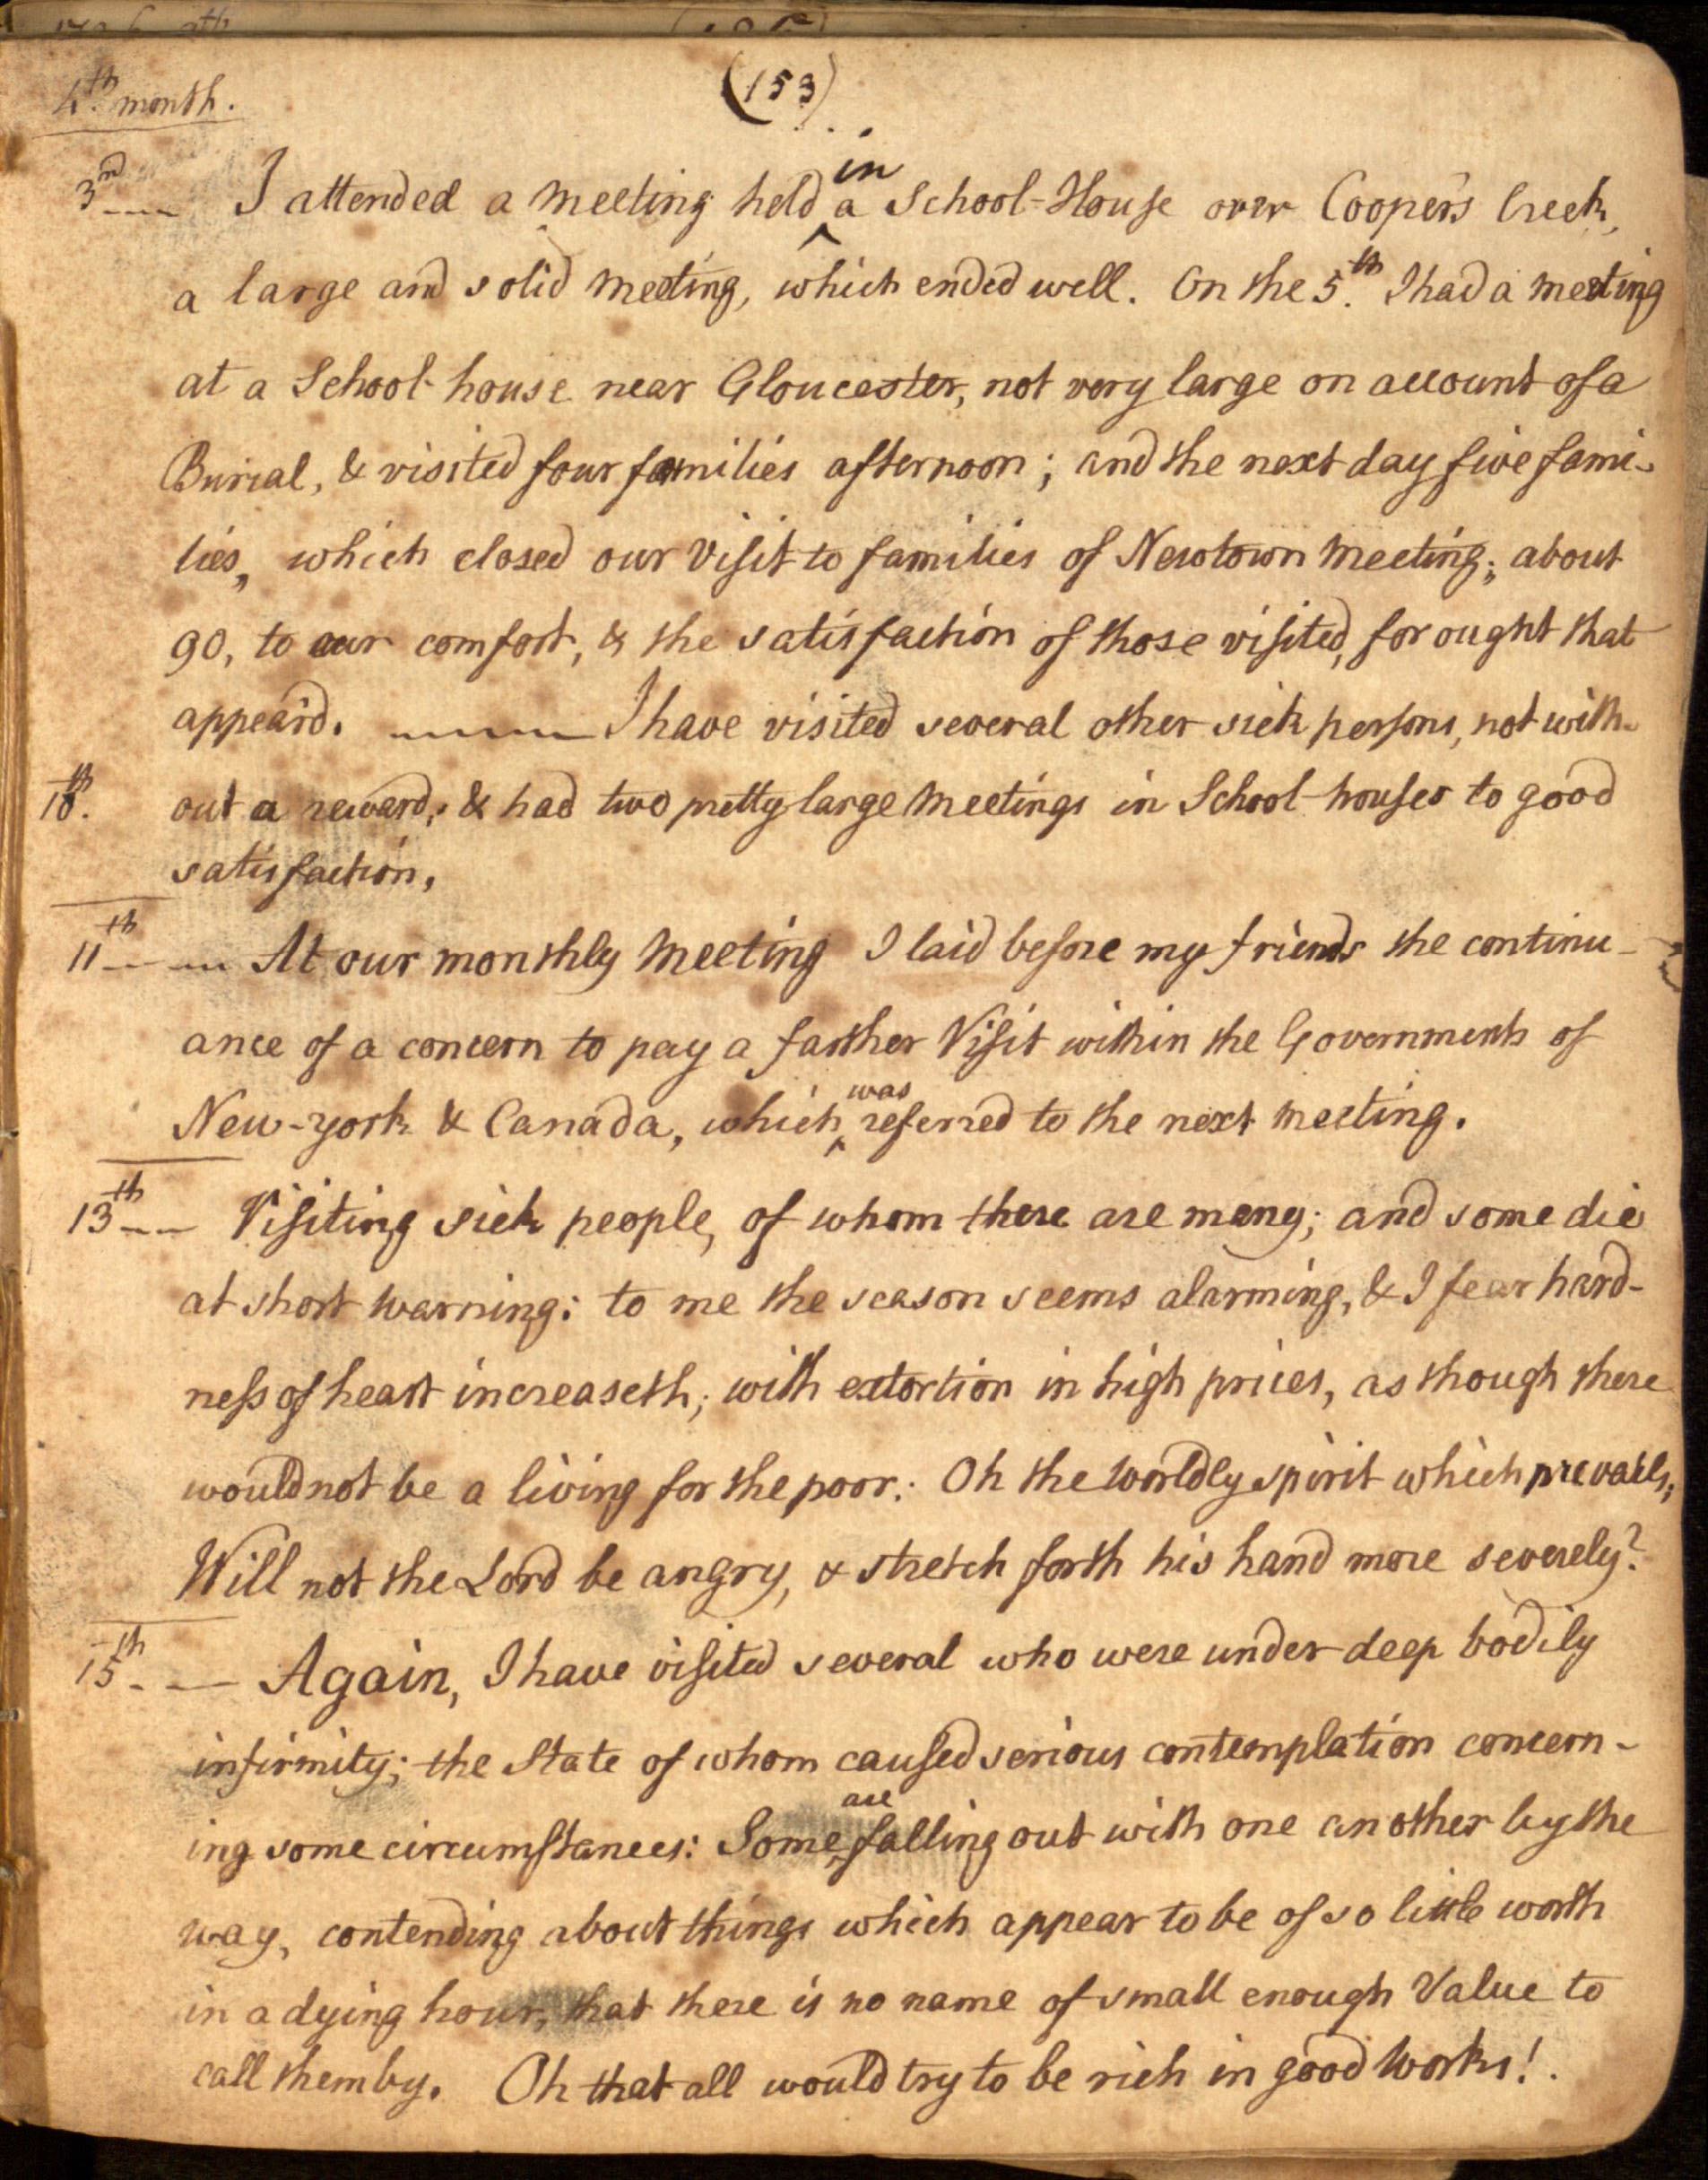 (153)
4th month.
3nd I attended a meeting held in a School-House over Cooper's Creek,
a large and solid meeting, which ended well. On the 5th. I had a meeting
at a School-house near Gloucester, not very large on account of a
Burial, & visited four families afternoon; and the next day five fami-
lies, which closed our Visit to families of Newtown meeting; about
90, to our comfort, & the satisfaction of those visited, for ought that
appear'd. I have visited several other sick persons, not with-
10th. out a reward; & had two pretty large meetings in School-houses to good
satisfaction.
11th At our monthly meeting I laid before my friends the continu-
ance of a concern to pay a farther Visit within the Governments of
New-york & Canada, which was referred to the next meeting.
13th Visiting sick people, of whom there are many; and some die
at short warning: to me the season seems alarming, & I fear hard-
ness of heart increaseth; with extortion in high prices, as though there
would not be a living for the poor: Oh the worldly spirit which prevails;
Will not the Lord be angry, & stretch forth his hand more severely?
15th Again, I have visited several who were under deep bodily
infirmity; the State of whom caused serious contemplation concern-
ing some circumstances: Some are falling out with one another by the
way, contending about things which appear to be of so little worth
in a dying hour, that there is no name of small enough Value to
call them by. Oh that all would try to be rich in good works!.